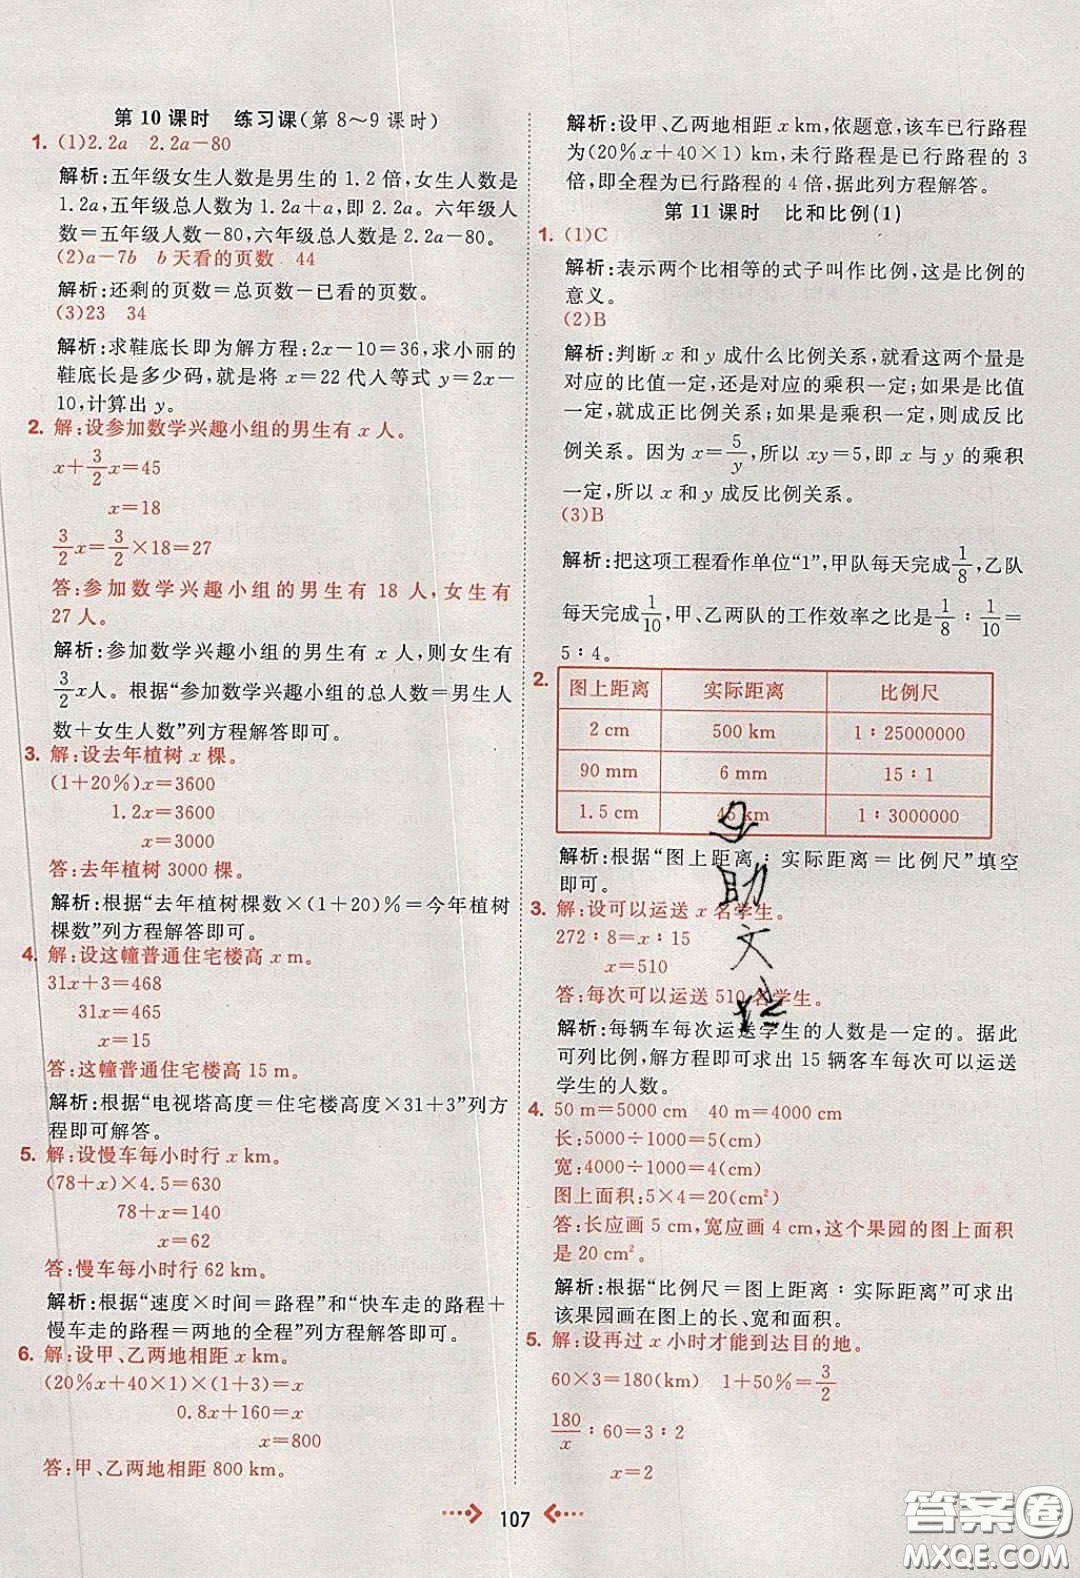 第 10 课时　练习课(第 8～9 课时)
1. (1)2.2a　2.2a－80
解析:五年级女生人数是男生的 1.2 倍,女生人数是
1.2a,五年级总人数为 1.2a＋a,即 2.2a。六年级总
人数＝五年级人数－80,六年级总人数为 2.2a－80。
(2)a－7b　b 天看的页数　44
解析:还剩的页数＝总页数－已看的页数。
(3)23　34
解析:求鞋底长即为解方程:2x－10＝36,求小丽的
鞋底长是多少码,就是将 x＝22 代入等式 y＝2x－
10,计算出 y。
2. 解:设参加数学兴趣小组的男生有 x 人。
x＋3/2x＝45
x＝18
3/2x＝3/2×18＝27
答:参加数学兴趣小组的男生有 18 人,女生有
27 人。
解析:参加数学兴趣小组的男生有 x 人,则女生有
3/2x人。根据“参加数学兴趣小组的总人数＝男生人
数＋女生人数”列方程解答即可。
3. 解:设去年植树 x 棵。
(1＋20％)x＝3600
1.2x＝3600
x＝3000
答:去年植树 3000 棵。
解析:根据“去年植树棵数×(1＋20)％＝今年植树
棵数”列方程解答即可。
4. 解:设这幢普通住宅楼高 x m。
31x＋3＝468
31x＝465
x＝15
答:这幢普通住宅楼高 15 m。
解析:根据“电视塔高度＝住宅楼高度×31＋3”列方
程即可解答。
5. 解:设慢车每小时行 x km。
(78＋x)×4.5＝630
78＋x＝140
x＝62
答:慢车每小时行 62 km。
解析:根据“速度×时间＝路程”和“快车走的路程＋
慢车走的路程＝两地的全程”列方程解答即可。
6. 解:设甲、乙两地相距 x km。
(20％x＋40×1)×4＝x
0.8x＋160＝x
x＝800
答:甲、乙两地相距 800 km。
解析:设甲、乙两地相距 x km,依题意,该车已行路程
为(20％x＋40×1) km,未行路程是已行路程的 3
倍,即全程为已行路程的 4 倍,据此列方程解答。
第 11 课时　比和比例(1)
1. (1)C
解析:表示两个比相等的式子叫作比例,这是比例的
意义。
(2)B
解析:判断 x 和 y 成什么比例关系,就看这两个量是
对应的比值一定,还是对应的乘积一定;如果是比值
一定,就成正比例关系;如果是乘积一定,则成反比
例关系。因为 x＝5/y,所以 xy＝5,即 x 与 y 的乘积
一定,所以 x 和 y 成反比例关系。
(3)B
解析:把这项工程看作单位“1”,甲队每天完成1/8,乙队
每天完成1/10,甲、乙两队的工作效率之比是1/8∶1/10＝
5∶4。
2. 图上距离　实际距离　比例尺
2 cm　500 km　1∶25000000
90 mm　6 mm　15∶1
1.5 cm　45 km　1∶3000000
解析:根据“图上距离∶实际距离＝比例尺”填空
即可。
3. 解:设可以运送 x 名学生。
272∶8＝x∶15
x＝510
答:每次可以运送 510 名学生。
解析:每辆车每次运送学生的人数是一定的。据此
可列比例,解方程即可求出 15 辆客车每次可以运送
学生的人数。
4. 50 m＝5000 cm　40 m＝4000 cm
长:5000÷1000＝5(cm)
宽:4000÷1000＝4(cm)
图上面积:5×4＝20(cm²)
答:长应画 5 cm,宽应画 4 cm,这个果园的图上面积
是 20 cm²。
解析:根据“比例尺＝图上距离∶实际距离”可求出
该果园画在图上的长、宽和面积。
5. 解:设再过 x 小时才能到达目的地。
60×3＝180(km)　1＋50％＝3/2
180/x∶60＝3∶2
x＝2
107
答案圈
MXQE.COM